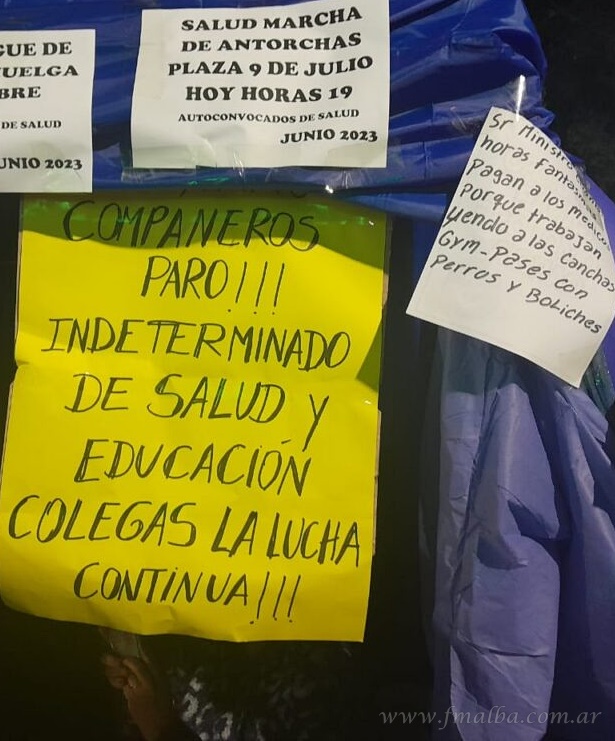 GUE DE
HUELGA
BRE
DE SALUD
UNIO 2023
SALUD MARCHA
DE ANTORCHAS
PLAZA 9 DE JULIO
HOY HORAS 19
AUTOCONVOCADOS DE SALUD
JUNIO 2023
COMPANEROS
PARO!!!
INDETERMINADO
DE SALUD Y
EDUCACIÓN
COLEGAS LA LUCHA
CONTINUA!!!
Sr Ministro
horas fantasmas
Pagan a los medicos
porque trabajan
yendo a las canchas
Gym-Pases con
Perros y Boliches
www.fmalba.com.ar